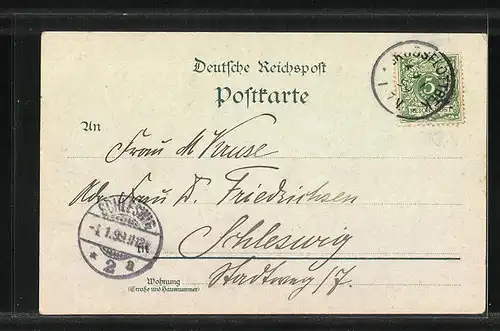 Deutsche Reichspost
Postkarte
5
An
Frau M Kruse
Adr. Frau D. Friedrichsen
in
Schleswig
Stadtweg 17.
SCHLESWIG
-4.1.99.
* 2 a
Wohnung
(Straße und Hausnummer)